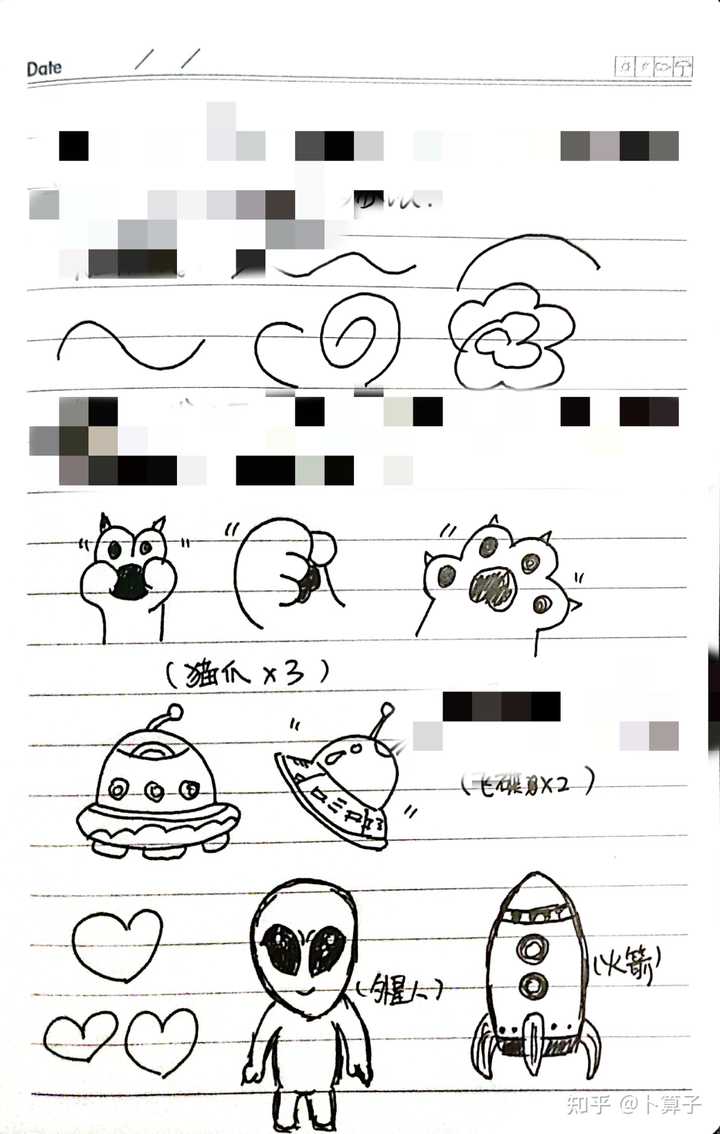 Date / /
(猫爪 x 3)
(飞碟 x2)
(外星人)
(火箭)
知乎 @卜算子